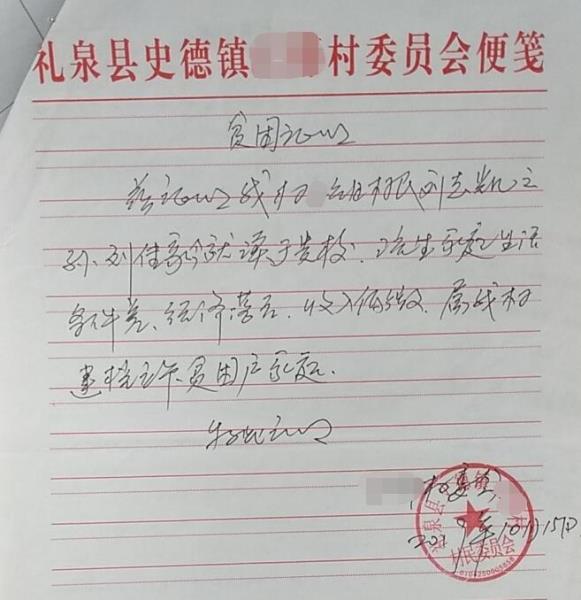 礼泉县史德镇 村委员会便笺
贫困证明
兹证明我村 组村民刘志凯之
孙、刘佳 就读于贵校、该生家庭生活
条件差、经济落后、收入低微、属我村
建档立卡贫困户家庭.
特此证明
村委会
2019年10月15日
礼泉县 村民委员会